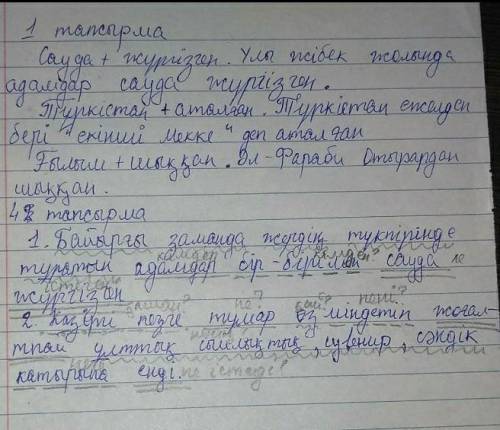 1 тапсырма
Сауда + жүргізген. Ұлы жібек жолында
адамдар сауда жүргізген.
Түркістан + аталған. Түркістан ежелден
бері "екінші Мекке" деп аталған
Ғылым + шыққан. Әл-Фараби Отырардан
шыққан.
4 тапсырма
1. Байырғы заманда жердің түкпірінде
тұратын адамдар бір-бірімен сауда
жүргізген
қашан? не? қай? нені?
2. Қазіргі кезде тұмар өз міндетін жоғал-
тпай ұлттық сыйлықтық, сувенир, сәндік
қатырына енді. не істеді?